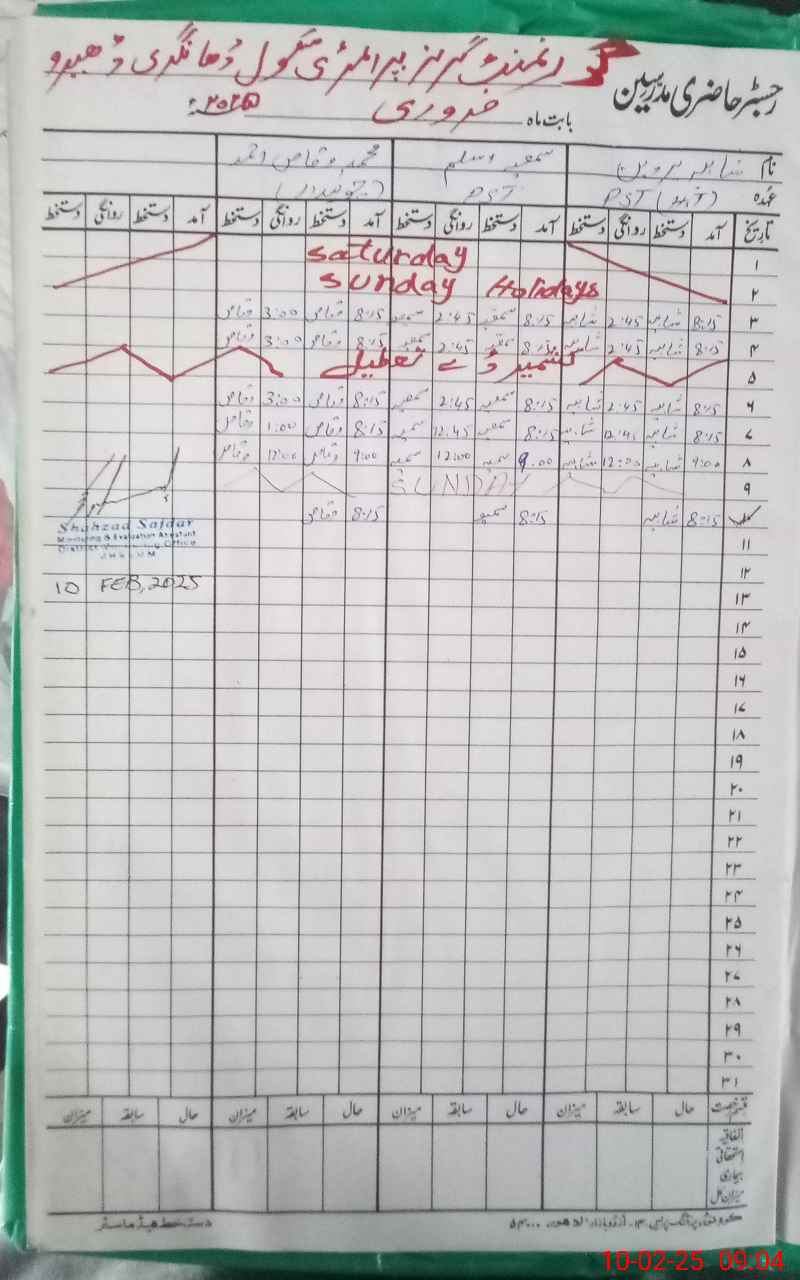 رجسٹر حاضری مدرسین
گورنمنٹ گرلز پرائمری سکول ڈھانگری ڈھیرو
بابت ماہ فروری ۲۰۲۵ء
نام شاہدہ پروین سمعیہ اسلم محمد وقاص احمد
عہدہ PST (ہیڈ) PST (چوکیدار)
تاریخ آمد دستخط روانگی دستخط آمد دستخط روانگی دستخط آمد دستخط روانگی دستخط آمد دستخط روانگی دستخط
۱ Saturday
۲ Sunday Holidays
۳ 8:15 2:45 8:15 2:45 8:15 وقاص 3:00 وقاص
۴ 8:15 2:45 8:15 2:45 8:15 وقاص 3:00 وقاص
۵ کشمیر ڈے تعطیل
۶ 8:15 2:45 8:15 2:45 8:15 وقاص 3:00 وقاص
۷ 8:15 12:45 8:15 12:45 8:15 وقاص 1:00 وقاص
۸ 9:00 12:00 9:00 12:00 9:00 وقاص 12:00 وقاص
۹ SUNDAY
8:15 8:15 8:15 وقاص
Shahzad Safdar
Monitoring & Evaluation Assistant
District Monitoring Office
JHELUM
10 FEB, 2025
۱۱
۱۲
۱۳
۱۴
۱۵
۱۶
۱۷
۱۸
۱۹
۲۰
۲۱
۲۲
۲۳
۲۴
۲۵
۲۶
۲۷
۲۸
۲۹
۳۰
۳۱
قسم رخصت حال سابقہ میزان حال سابقہ میزان حال سابقہ میزان حال سابقہ میزان
اتفاقیہ
استحقاقی
بیماری
میزان کل
دستخط ہیڈ ماسٹر
10-02-25 09.04